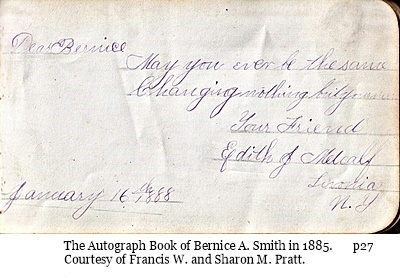 Dear Bernice
May you ever be the same
Changing nothing but your name
Your Friend
Edith J Metcalf
N. Y
January 16th 1888
The Autograph Book of Bernice A. Smith in 1885. p27
Courtesy of Francis W. and Sharon M. Pratt.